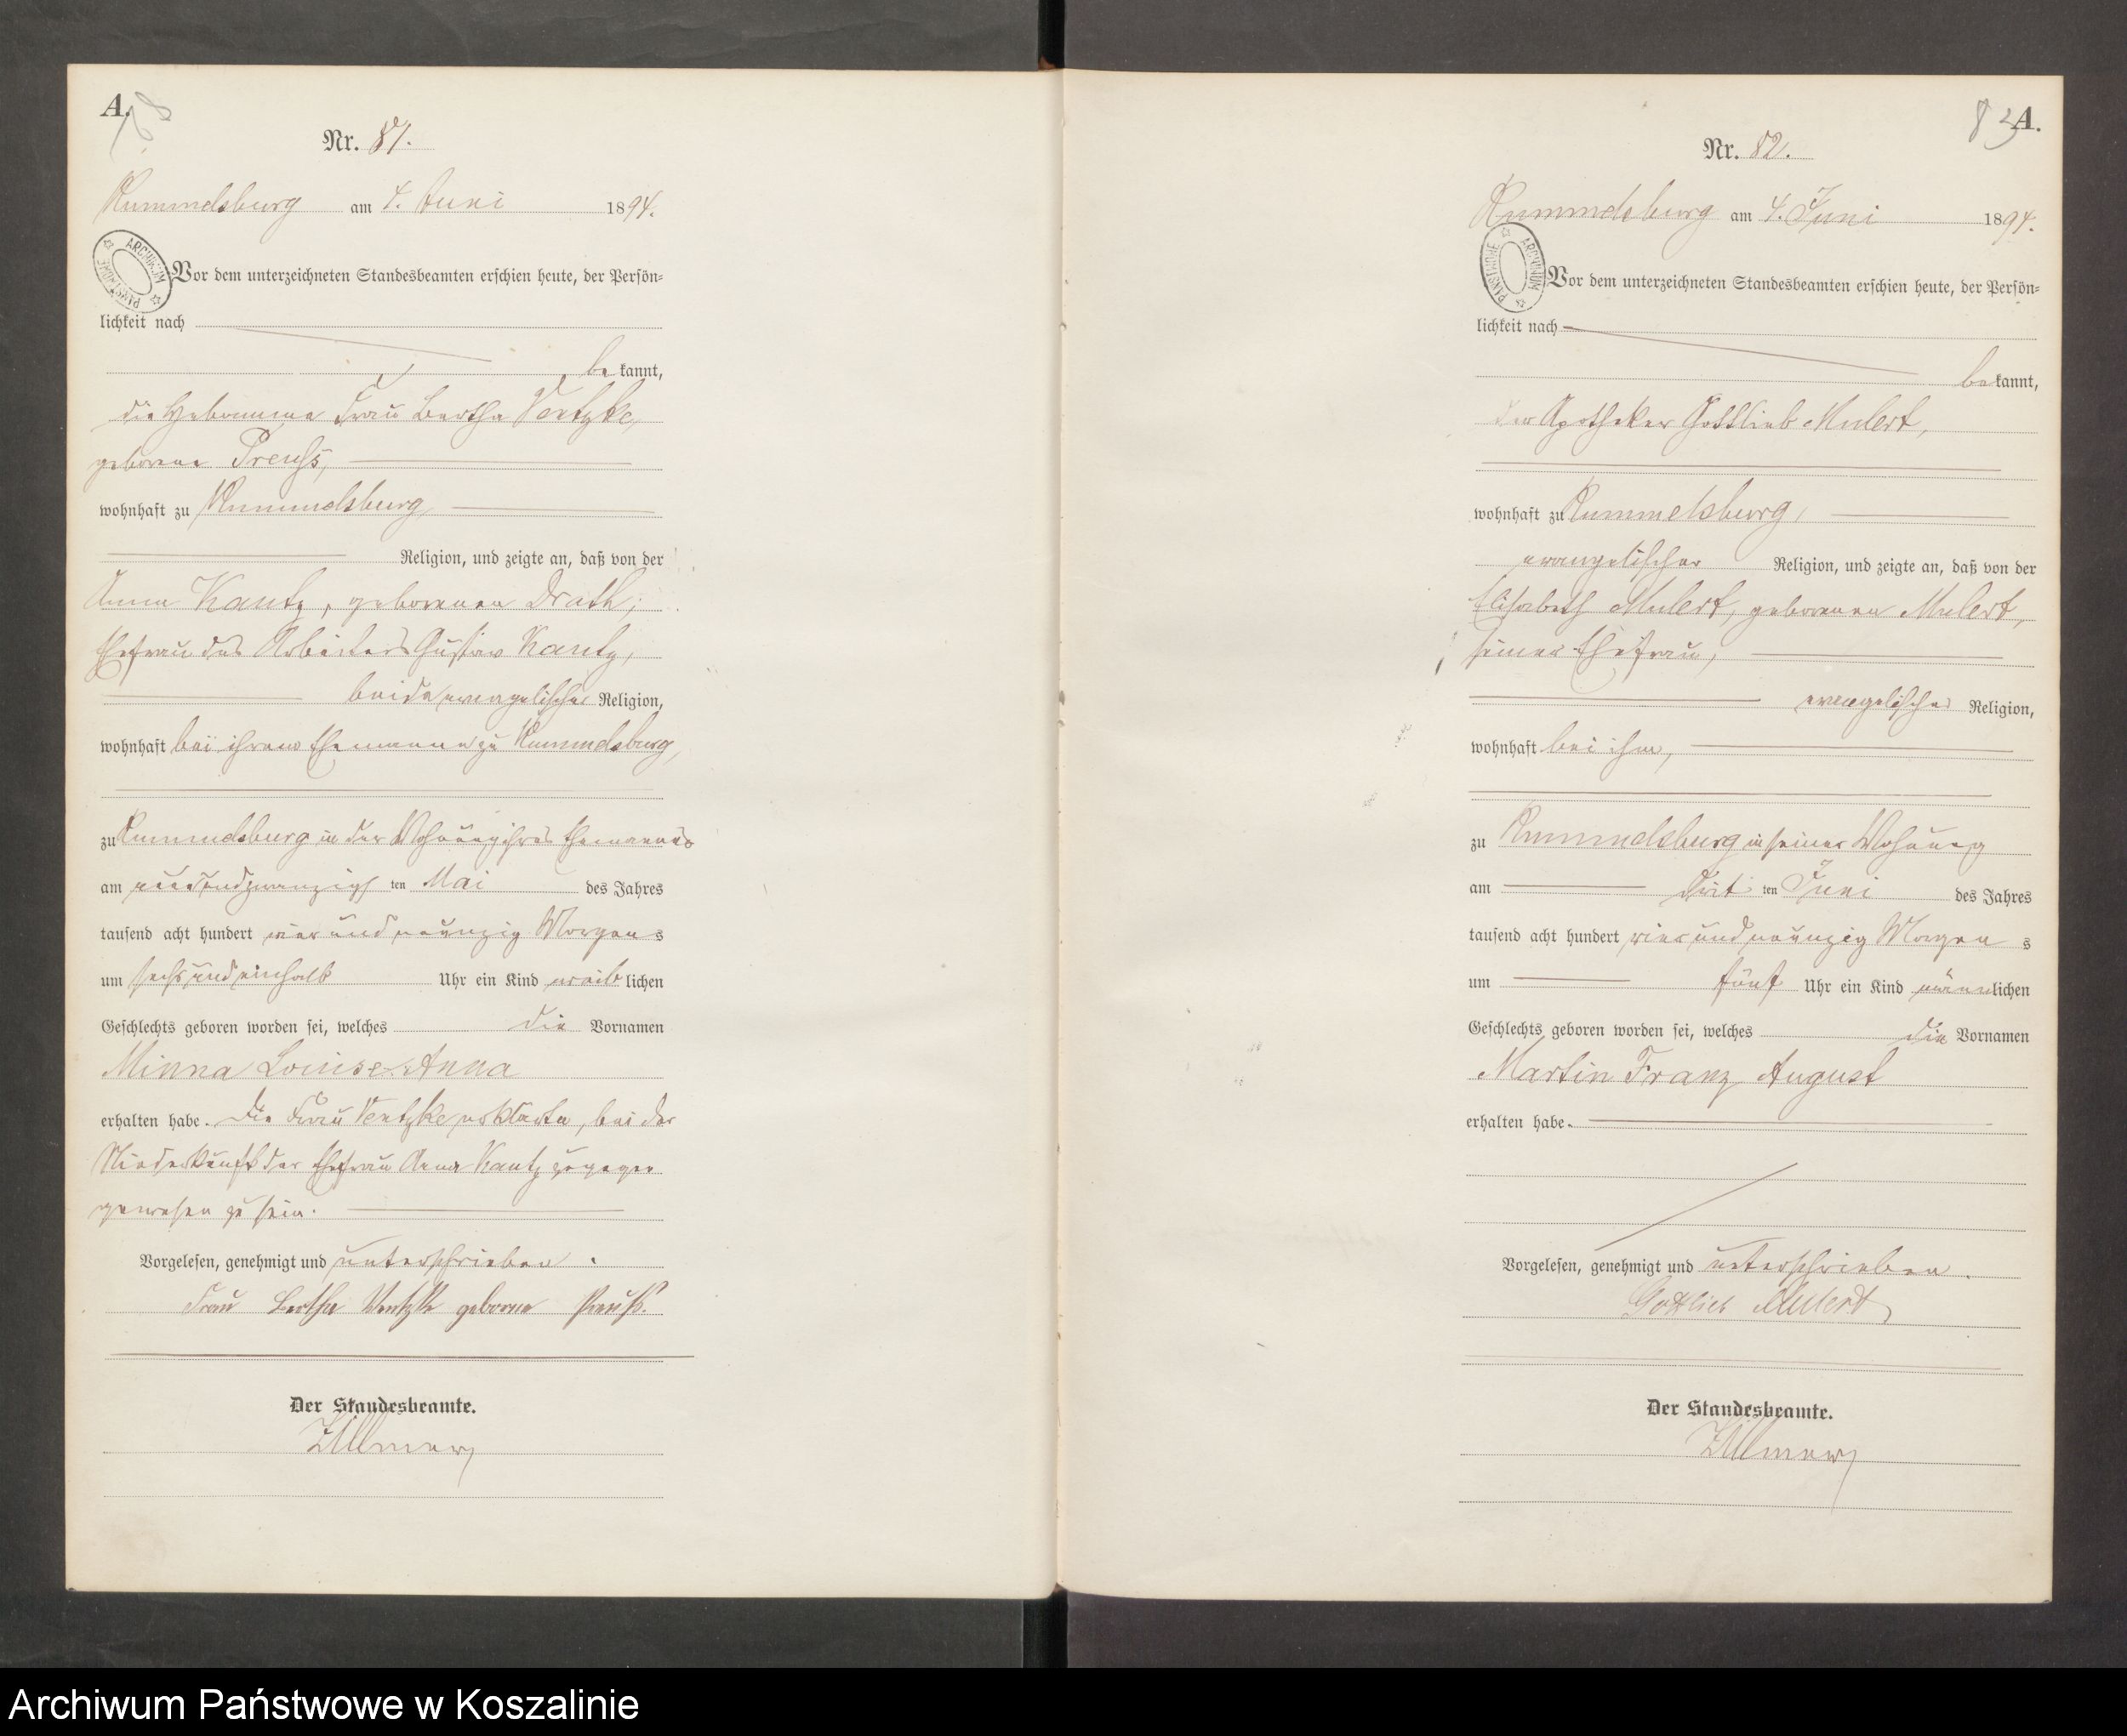 A.
Nr. 81.
Rummelsburg am 4. Juni 1894.
Vor dem unterzeichneten Standesbeamten erschien heute, der Persön=
lichkeit nach
be kannt,
die Hebamme Frau Bertha Ventzke,
geborene Preuß,
wohnhaft zu Rummelsburg
Religion, und zeigte an, daß von der
Anna Kautz, geborenen Drath,
Ehefrau des Arbeiters Gustav Kautz,
beide evangelischer Religion,
wohnhaft bei ihrem Ehemanne zu Rummelsburg,
zu Rummelsburg in der Wohnung ihres Ehemannes
am ten Mai des Jahres
tausend acht hundert vier und neunzig Morgens
um sechs und einhalb Uhr ein Kind weiblichen
Geschlechts geboren worden sei, welches die Vornamen
Minna Louise Anna
erhalten habe. Die Frau Ventzke erklärte, bei der
Niederkunft der Ehefrau Anna Kautz zugegen
gewesen zu sein.
Vorgelesen, genehmigt und unterschrieben.
Frau Bertha Ventzke geborne Preuß.
Der Standesbeamte.
Zillmer
83 A.
Nr. 82.
Rummelsburg am 4. Juni 1894.
Vor dem unterzeichneten Standesbeamten erschien heute, der Persön=
lichkeit nach
be kannt,
der Apotheker Gottlieb Mulert,
wohnhaft zu Rummelsburg,
evangelischer Religion, und zeigte an, daß von der
Elisabeth Mulert, geborenen Mulert,
seiner Ehefrau,
evangelischer Religion,
wohnhaft bei ihm,
zu Rummelsburg in seiner Wohnung
am drit ten Juni des Jahres
tausend acht hundert vier und neunzig Morgens
um fünf Uhr ein Kind männlichen
Geschlechts geboren worden sei, welches die Vornamen
Martin Franz August
erhalten habe.
Vorgelesen, genehmigt und unterschrieben.
Gottlieb Mulert
Der Standesbeamte.
Zillmer
ARCHIWUM PAŃSTWOWE
ARCHIWUM PAŃSTWOWE
Archiwum Państwowe w Koszalinie